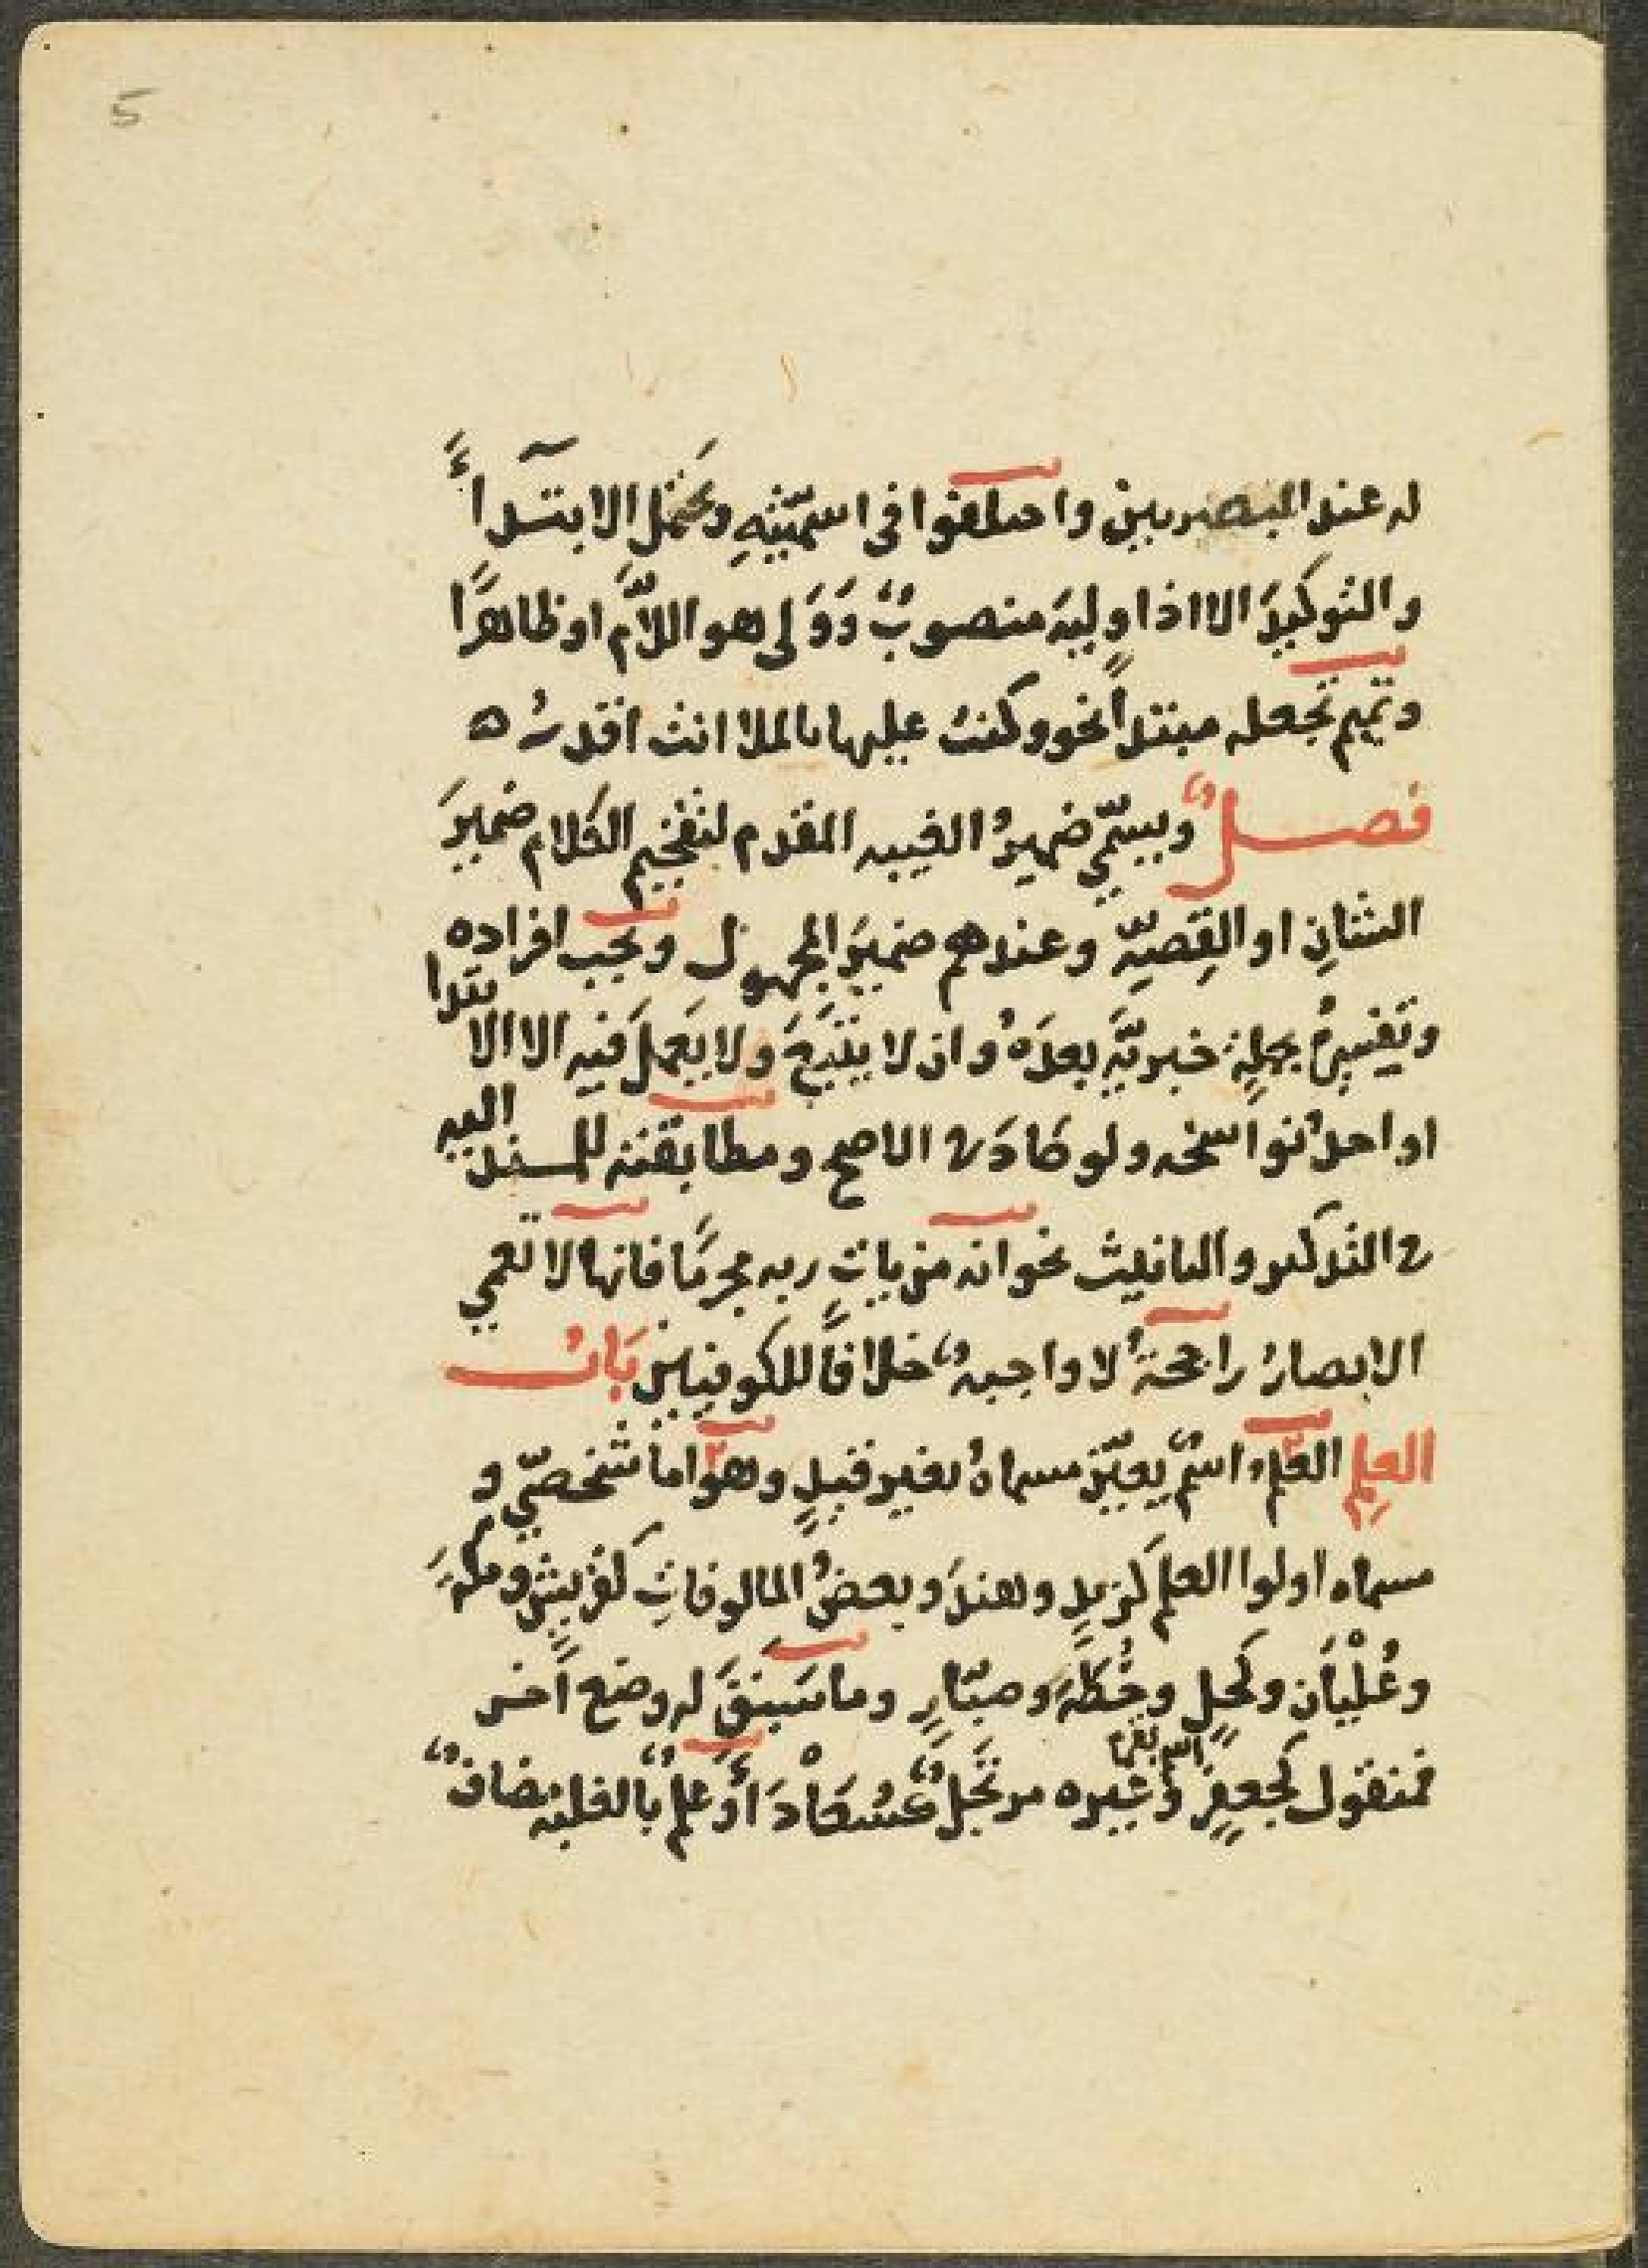 5
له عند البصريين واختلفوا في اسميّته ويحتمل الابتداءً
والتوكيدَ الا اذا وليه منصوبٌ وَوَلى هو اللامَ او ظاهرًا
وتميم تجعله مبتدأً نحو وكنت عليها بالملا انت اقدرُ ه
فصلٌ ويسمّي ضميرُ الغيبه المقدم لتفخيم الكلام ضميرَ
الشانِ او القِصّيّه وعندهم ضميرَ المجهول ويجب افراده
وتفسيرهُ بجملةٍ خبريّهٍ بعدَهُ وان لا يتبعَ ولا يعملَ فيه الا الابتدا
او احدُ نواسخه ولو كادَ في الاصح ومطابقته للمسند اليه
في التذكير والتانيث نحو انه من ياتِ ربه مجرمًا فانها لا تعمي
الابصارُ راجحةٌ لا واجبهٌ خلافًا للكوفيين بَابُ
العلمِ العلم اسمٌ يعيّن مسماهُ بغير قيدٍ وهو اما شخصيّ و
مسماه اولوا العلم كزيدٍ وهندَ وبعضُ المالوفاتِ كقريشٍ ومكةَ
وعُلْيَان وكحلٍ وخُطّهَ وصبّارٍ وما سَبقَ له وضع آخر
فمنقول كجعفرٍ وغيره مرتجلٌ كسُعَادَ أو علمٌ بالغلبة مضافٌ